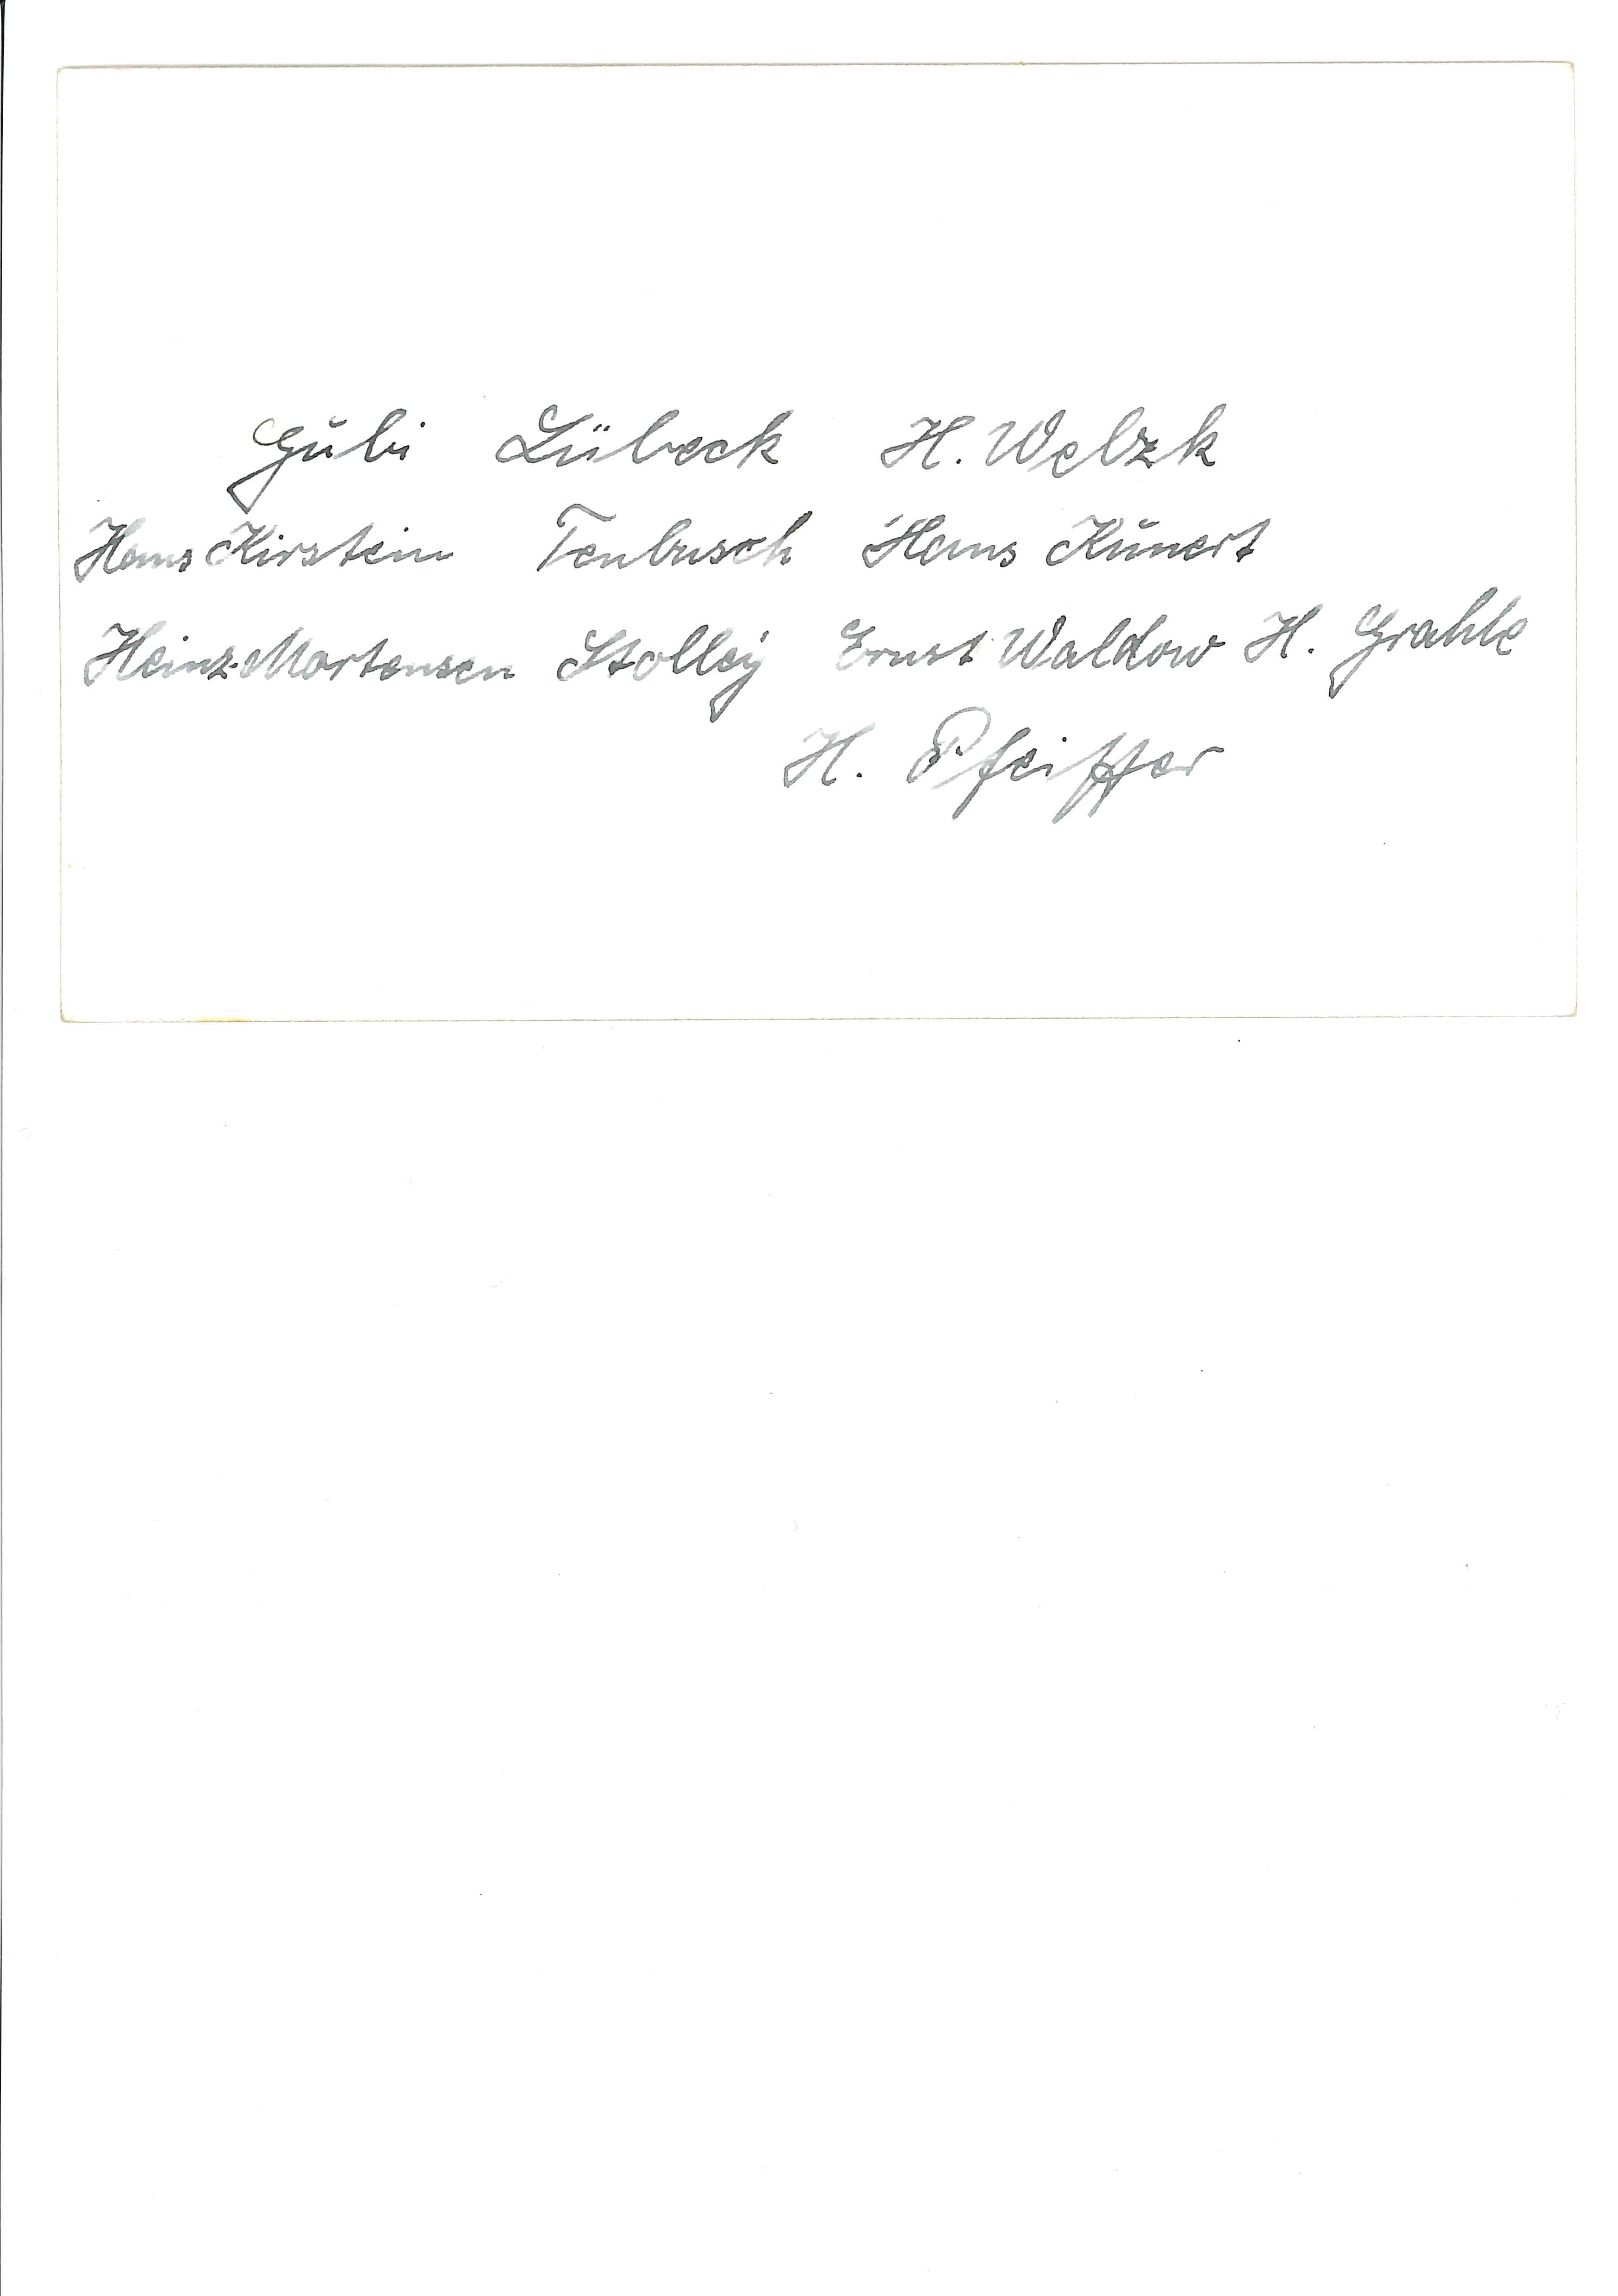 Gubi Lübeck H. Welzk
Hans Kirstein Tenbusch Hans Kunert
Heinz Martensen Stolley Ernst Waldow H. Grahle
H. Pfeiffer